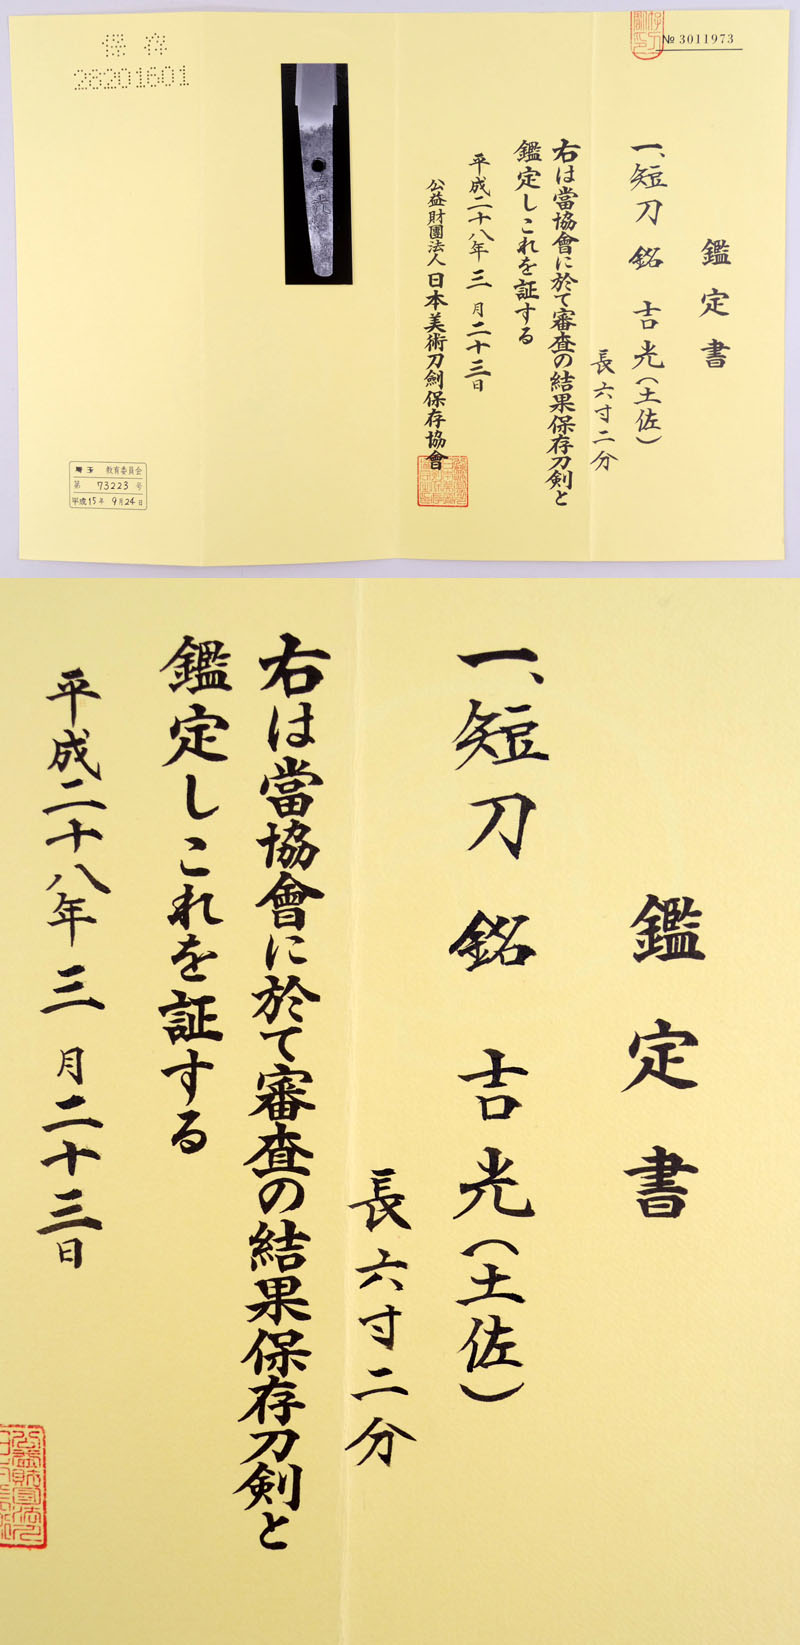 № 3011973
鑑定書
一、短刀 銘 吉光(土佐)
長六寸二分
右は當協會に於て審査の結果保存刀剣と
鑑定しこれを証する
平成二十八年三月二十三日
公益財團法人日本美術刀劍保存協會
保存
28201601
埼玉 教育委員会
第 73223 号
平成15年 9月24日
鑑定書
一、短刀 銘 吉光(土佐)
長六寸二分
右は當協會に於て審査の結果保存刀剣と
鑑定しこれを証する
平成二十八年三月二十三日